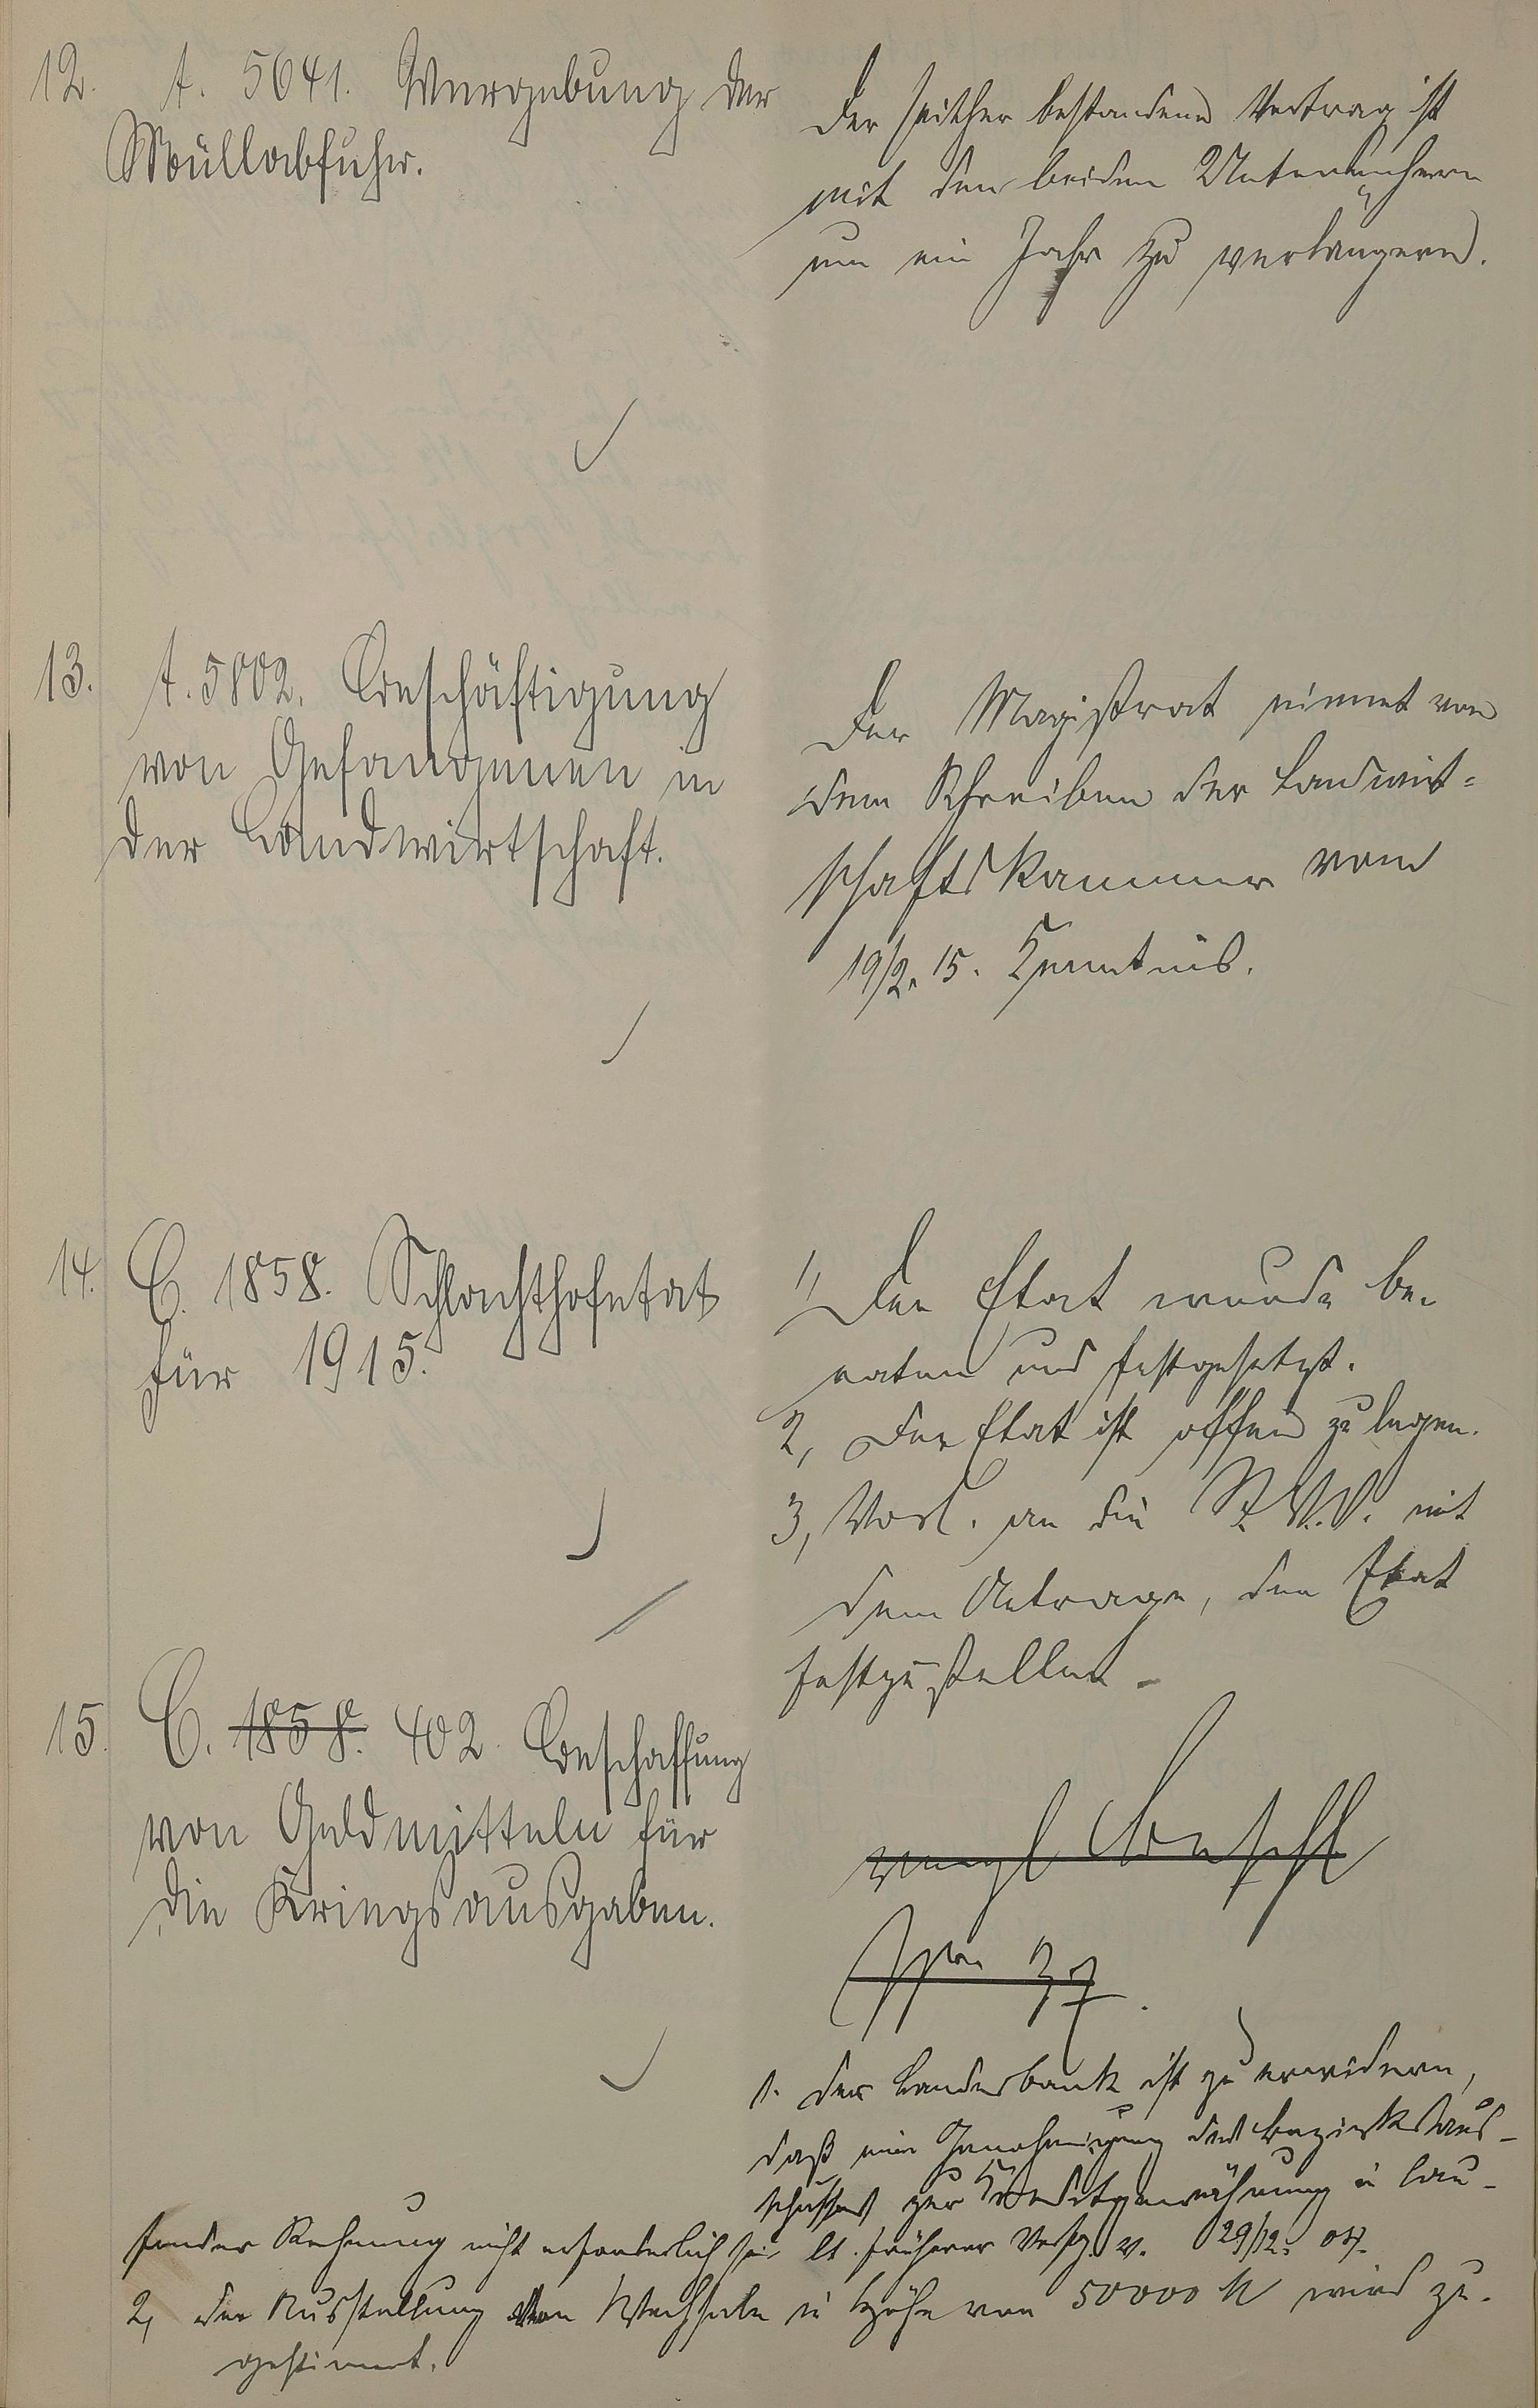 12. A. 5641. Vergebung der
Müllabfuhr.
Der seither bestandene Vertrag ist
mit den beiden Unternehmern
um ein Jahr zu verlängern.
13. A. 5802. Beschäftigung
von Gefangenen in
der Landwirtschaft.
Der Magistrat nimmt von
dem Schreiben der Landwirt=
schaftskammer vom
19/2. 15. Kenntnis.
14. C. 1858. Schlachthofetat
für 1915.
1, Der Etat wurde be-
raten und festgesetzt.
2, Der Etat ist offen zu legen.
3, Vorl. an die St. V. V. mit
dem Antrage, den Etat
festzustellen.
15. C. 1858. 402. Beschaffung
von Geldmitteln für
die Kriegsausgaben.
vergl Beschl
37.
1. Der Landesbank ist zu erwidern,
daß eine Genehmigung des Bezirksaus-
schusses zur Kreditgewährung in lau-
fender Rechnung nicht erforderlich sei lt. früherer Verfg. v. 29/12. 07.
2, Der Ausstellung von Wechseln in Höhe von 50000 M wird zu-
gestimmt.